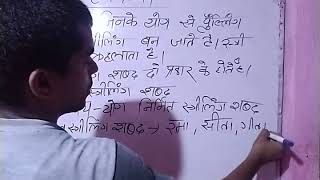 जिनके योग से पुल्लिंग
स्त्रीलिंग बन जाते है। स्त्री
कहलाता है।
शब्द दो प्रकार के होते है।
स्त्रीलिंग शब्द
योग निर्मित स्त्रीलिंग शब्द
स्त्रीलिंग शब्द → रमा, सीता, गीता